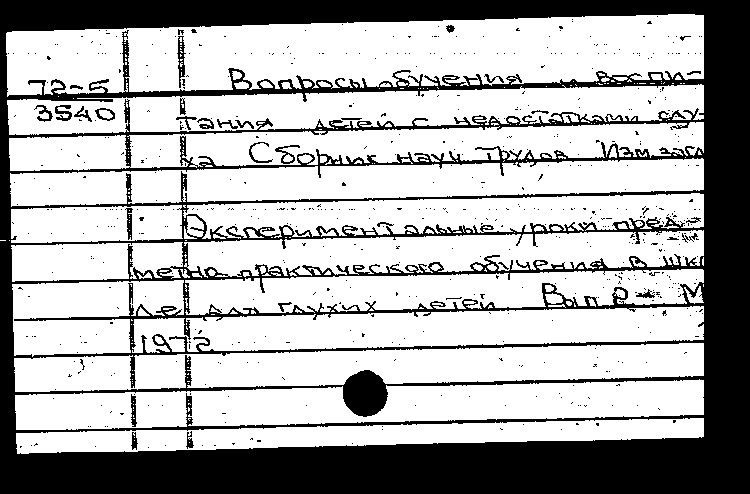 72-5
3540
Вопросы обучения и воспи-
тания детей с недостатками слу-
ха Сборник науч трудов Изм. загл
Экспериментальные уроки пред-
метно практического обучения в шко
ле для глухих детей Вып 2 - М
1972